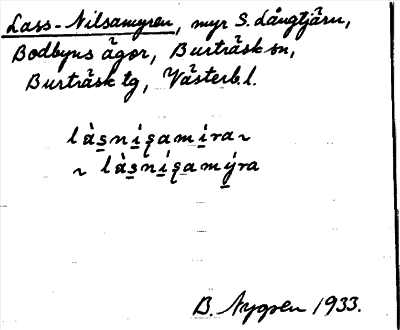 Lass-Nilsamyren, myr S. Långtjärn,
Bodbyns ägor, Burträsk sn,
Burträsk tg, Västerb. l.
B. Nygren 1933.